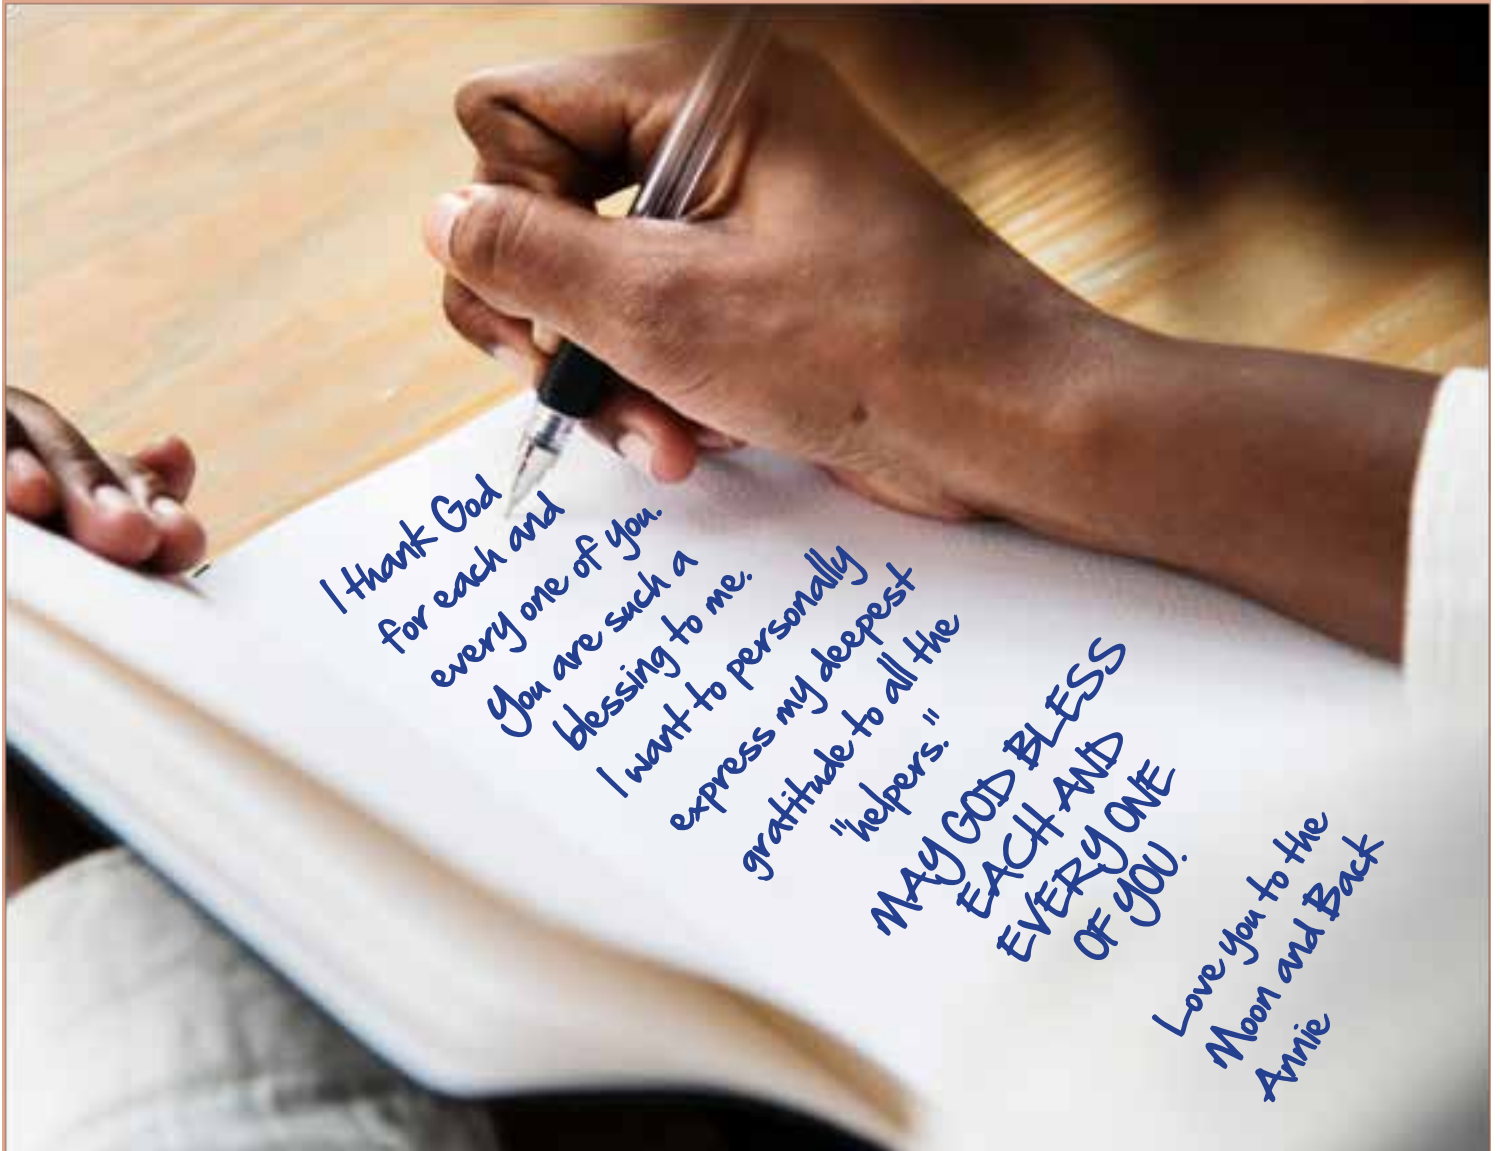 I thank God
for each and
every one of you.
You are such a
blessing to me.
I want to personally
express my deepest
gratitude to all the
"helpers."
MAY GOD BLESS
EACH AND
EVERY ONE
OF YOU.
Love you to the
Moon and Back
Annie